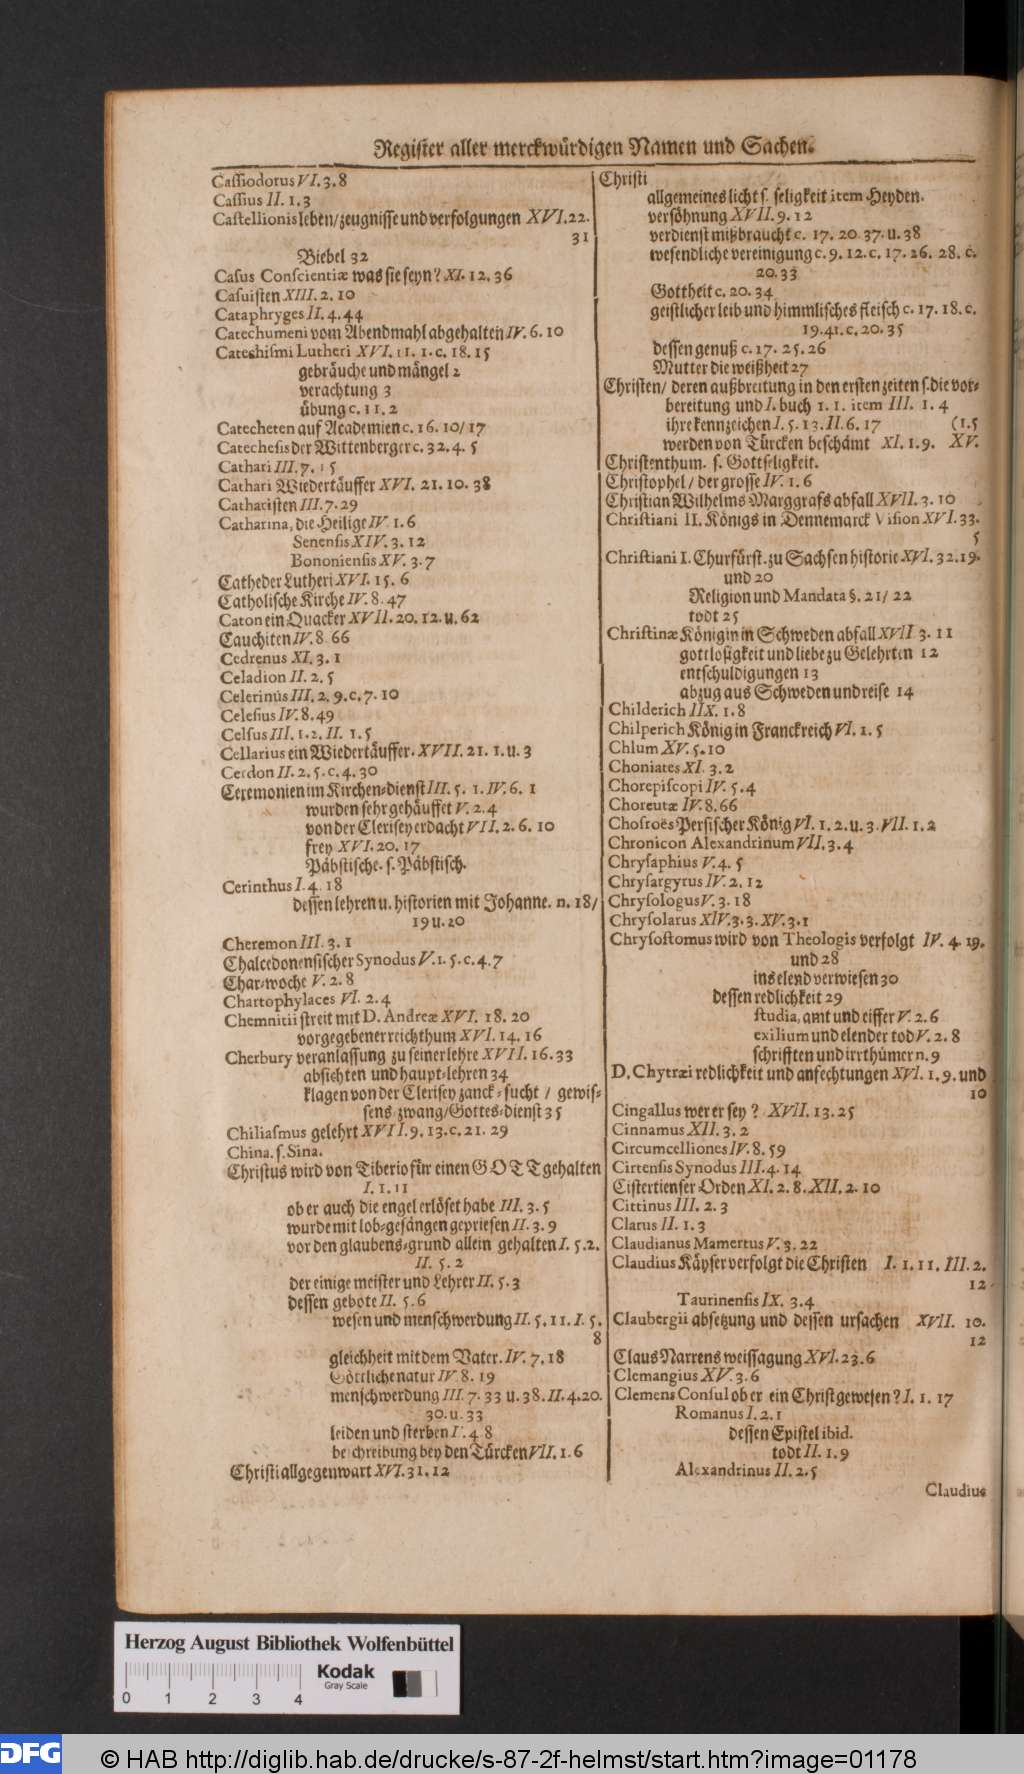 Register aller merckwürdigen Namen und Sachen.
Cassiodorus VI. 3. 8
Cassius II. 1. 3
Castellionis leben/ zeugnisse und verfolgungen XVI. 22.
31
Biebel 32
Casus Conscientiæ was sie seyn? XI. 12. 36
Casuisten XIII. 2. 10
Cataphryges II. 4. 44
Catechumeni vom Abendmahl abgehalten IV. 6. 10
Catechismi Lutheri XVI. 11. 1. c. 18. 15
gebräuche und mängel 2
verachtung 3
übung c. 11. 2
Catecheten auf Academien c. 16. 10/ 17
Catechesis der Wittenberger c. 32. 4. 5
Cathari III. 7. 15
Cathari Wiedertäuffer XVI. 21. 10. 38
Catharisten III. 7. 29
Catharina, die Heilige IV. 1. 6
Senensis XIV. 3. 12
Bononiensis XV. 3. 7
Catheder Lutheri XVI. 15. 6
Catholische Kirche IV. 8. 47
Caton ein Quacker XVII. 20. 12. u. 62
Cauchiten IV. 8. 66
Cedrenus XI. 3. 1
Celadion II. 2. 5
Celerinus III. 2. 9. c. 7. 10
Celesius IV. 8. 49
Celsus III. 1. 2. II. 1. 5
Cellarius ein Wiedertäuffer. XVII. 21. 1. u. 3
Cerdon II. 2. 5. c. 4. 30
Ceremonien im Kirchen-dienst III. 5. 1. IV. 6. 1
wurden sehr gehäuffet V. 2. 4
von der Clerisey erdacht VII. 2. 6. 10
frey XVI. 20. 17
Päbstische. s. Päbstisch.
Cerinthus I. 4. 18
dessen lehren u. historien mit Johanne. n. 18/
19 u. 20
Cheremon III. 3. 1
Chalcedonensischer Synodus V. 1. 5. c. 4. 7
Char-woche V. 2. 8
Chartophylaces VI. 2. 4
Chemnitii streit mit D. Andreæ XVI. 18. 20
vorgegebener reichthum XVI. 14. 16
Cherbury veranlassung zu seiner lehre XVII. 16. 33
absichten und haupt-lehren 34
klagen von der Clerisey zanck-sucht / gewis-
sens-zwang/ Gottes-dienst 35
Chiliasmus gelehrt XVII. 9. 13. c. 21. 29
China. s. Sina.
Christus wird von Tiberio für einen GOTT gehalten
I. 1. 11
ob er auch die engel erlöset habe III. 3. 5
wurde mit lob-gesängen gepriesen II. 3. 9
vor den glaubens-grund allein gehalten I. 5. 2.
II. 5. 2
der einige meister und Lehrer II. 5. 3
dessen gebote II. 5. 6
wesen und menschwerdung II. 5. 11. I. 5.
8
gleichheit mit dem Vater. IV. 7. 18
Göttliche natur IV. 8. 19
menschwerdung III. 7. 33 u. 38. II. 4. 20.
30. u. 33
leiden und sterben 4 8
beschreibung bey den Türcken VII. 1. 6
Christi allgegenwart XVI. 31. 12
Christi
allgemeines licht s. seligkeit item Heyden.
versöhnung XVII. 9. 12
verdienst mißbraucht c. 17. 20. 37. u. 38
wesendliche vereinigung c. 9. 12. c. 17. 26. 28. c.
20. 33
Gottheit c. 20. 34
geistlicher leib und himmlisches fleisch c. 17. 18. c.
19. 41. c. 20. 35
dessen genuß c. 17. 25. 26
Mutter die weißheit 27
Christen/ deren außbreitung in den ersten zeiten s. die vor-
bereitung und I. buch 1. 1. item III. 1. 4
ihre kennzeichen I. 5. 13. II. 6. 17 (1. 5
werden von Türcken beschämt XI. 1. 9. XV.
Christenthum. s. Gottseligkeit.
Christophel/ der grosse IV. 1. 6
Christian Wilhelms Marggrafs abfall XVII. 3. 10
Christiani II. Königs in Dennemarck Vision XVI. 33.
5
Christiani I. Churfürst. zu Sachsen historie XVI. 32. 19.
und 20
Religion und Mandata §. 21/ 22
todt 25
Christinæ Königin in Schweden abfall XVII 3. 11
gottlosigkeit und liebe zu Gelehrten 12
entschuldigungen 13
abzug aus Schweden und reise 14
Childerich IIX. 1. 8
Chilperich König in Franckreich VI. 1. 5
Chlum XV. 5. 10
Choniates XI. 3. 2
Chorepiscopi IV. 5. 4
Choreutæ IV. 8. 66
Chosroës Persischer König VI. 1. 2. u. 3. VII. 1. 2
Chronicon Alexandrinum VII. 3. 4
Chrysaphius V. 4. 5
Chrysargyrus IV. 2. 12
Chrysologus V. 3. 18
Chrysolarus XIV. 3. 3. XV. 3. 1
Chrysostomus wird von Theologis verfolgt IV. 4. 19.
und 28
ins elend verwiesen 30
dessen redlichkeit 29
studia, amt und eiffer V. 2. 6
exilium und elender tod V. 2. 8
schrifften und irrthümer n. 9
D. Chytræi redlichkeit und anfechtungen XVI. 1. 9. und
10
Cingallus wer er sey? XVII. 13. 25
Cinnamus XII. 3. 2
Circumcelliones IV. 8. 59
Cirtensis Synodus III. 4. 14
Cistertienser Orden XI. 2. 8. XII. 2. 10
Cittinus III. 2. 3
Clarus II. 1. 3
Claudianus Mamertus V. 3. 22
Claudius Käyser verfolgt die Christen I. 1. 11. III. 2.
12
Taurinensis IX. 3. 4
Claubergii absetzung und dessen ursachen XVII. 10.
12
Claus Narrens weissagung XVI. 23. 6
Clemangius XV. 3. 6
Clemens Consul ob er ein Christ gewesen? I. 1. 17
Romanus I. 2. 1
dessen Epistel ibid.
todt II. 1. 9
Alexandrinus II. 2. 5
Claudius
Herzog August Bibliothek Wolfenbüttel
0 1 2 3 4
Kodak
Gray Scale
DFG
© HAB http://diglib.hab.de/drucke/s-87-2f-helmst/start.htm?image=01178